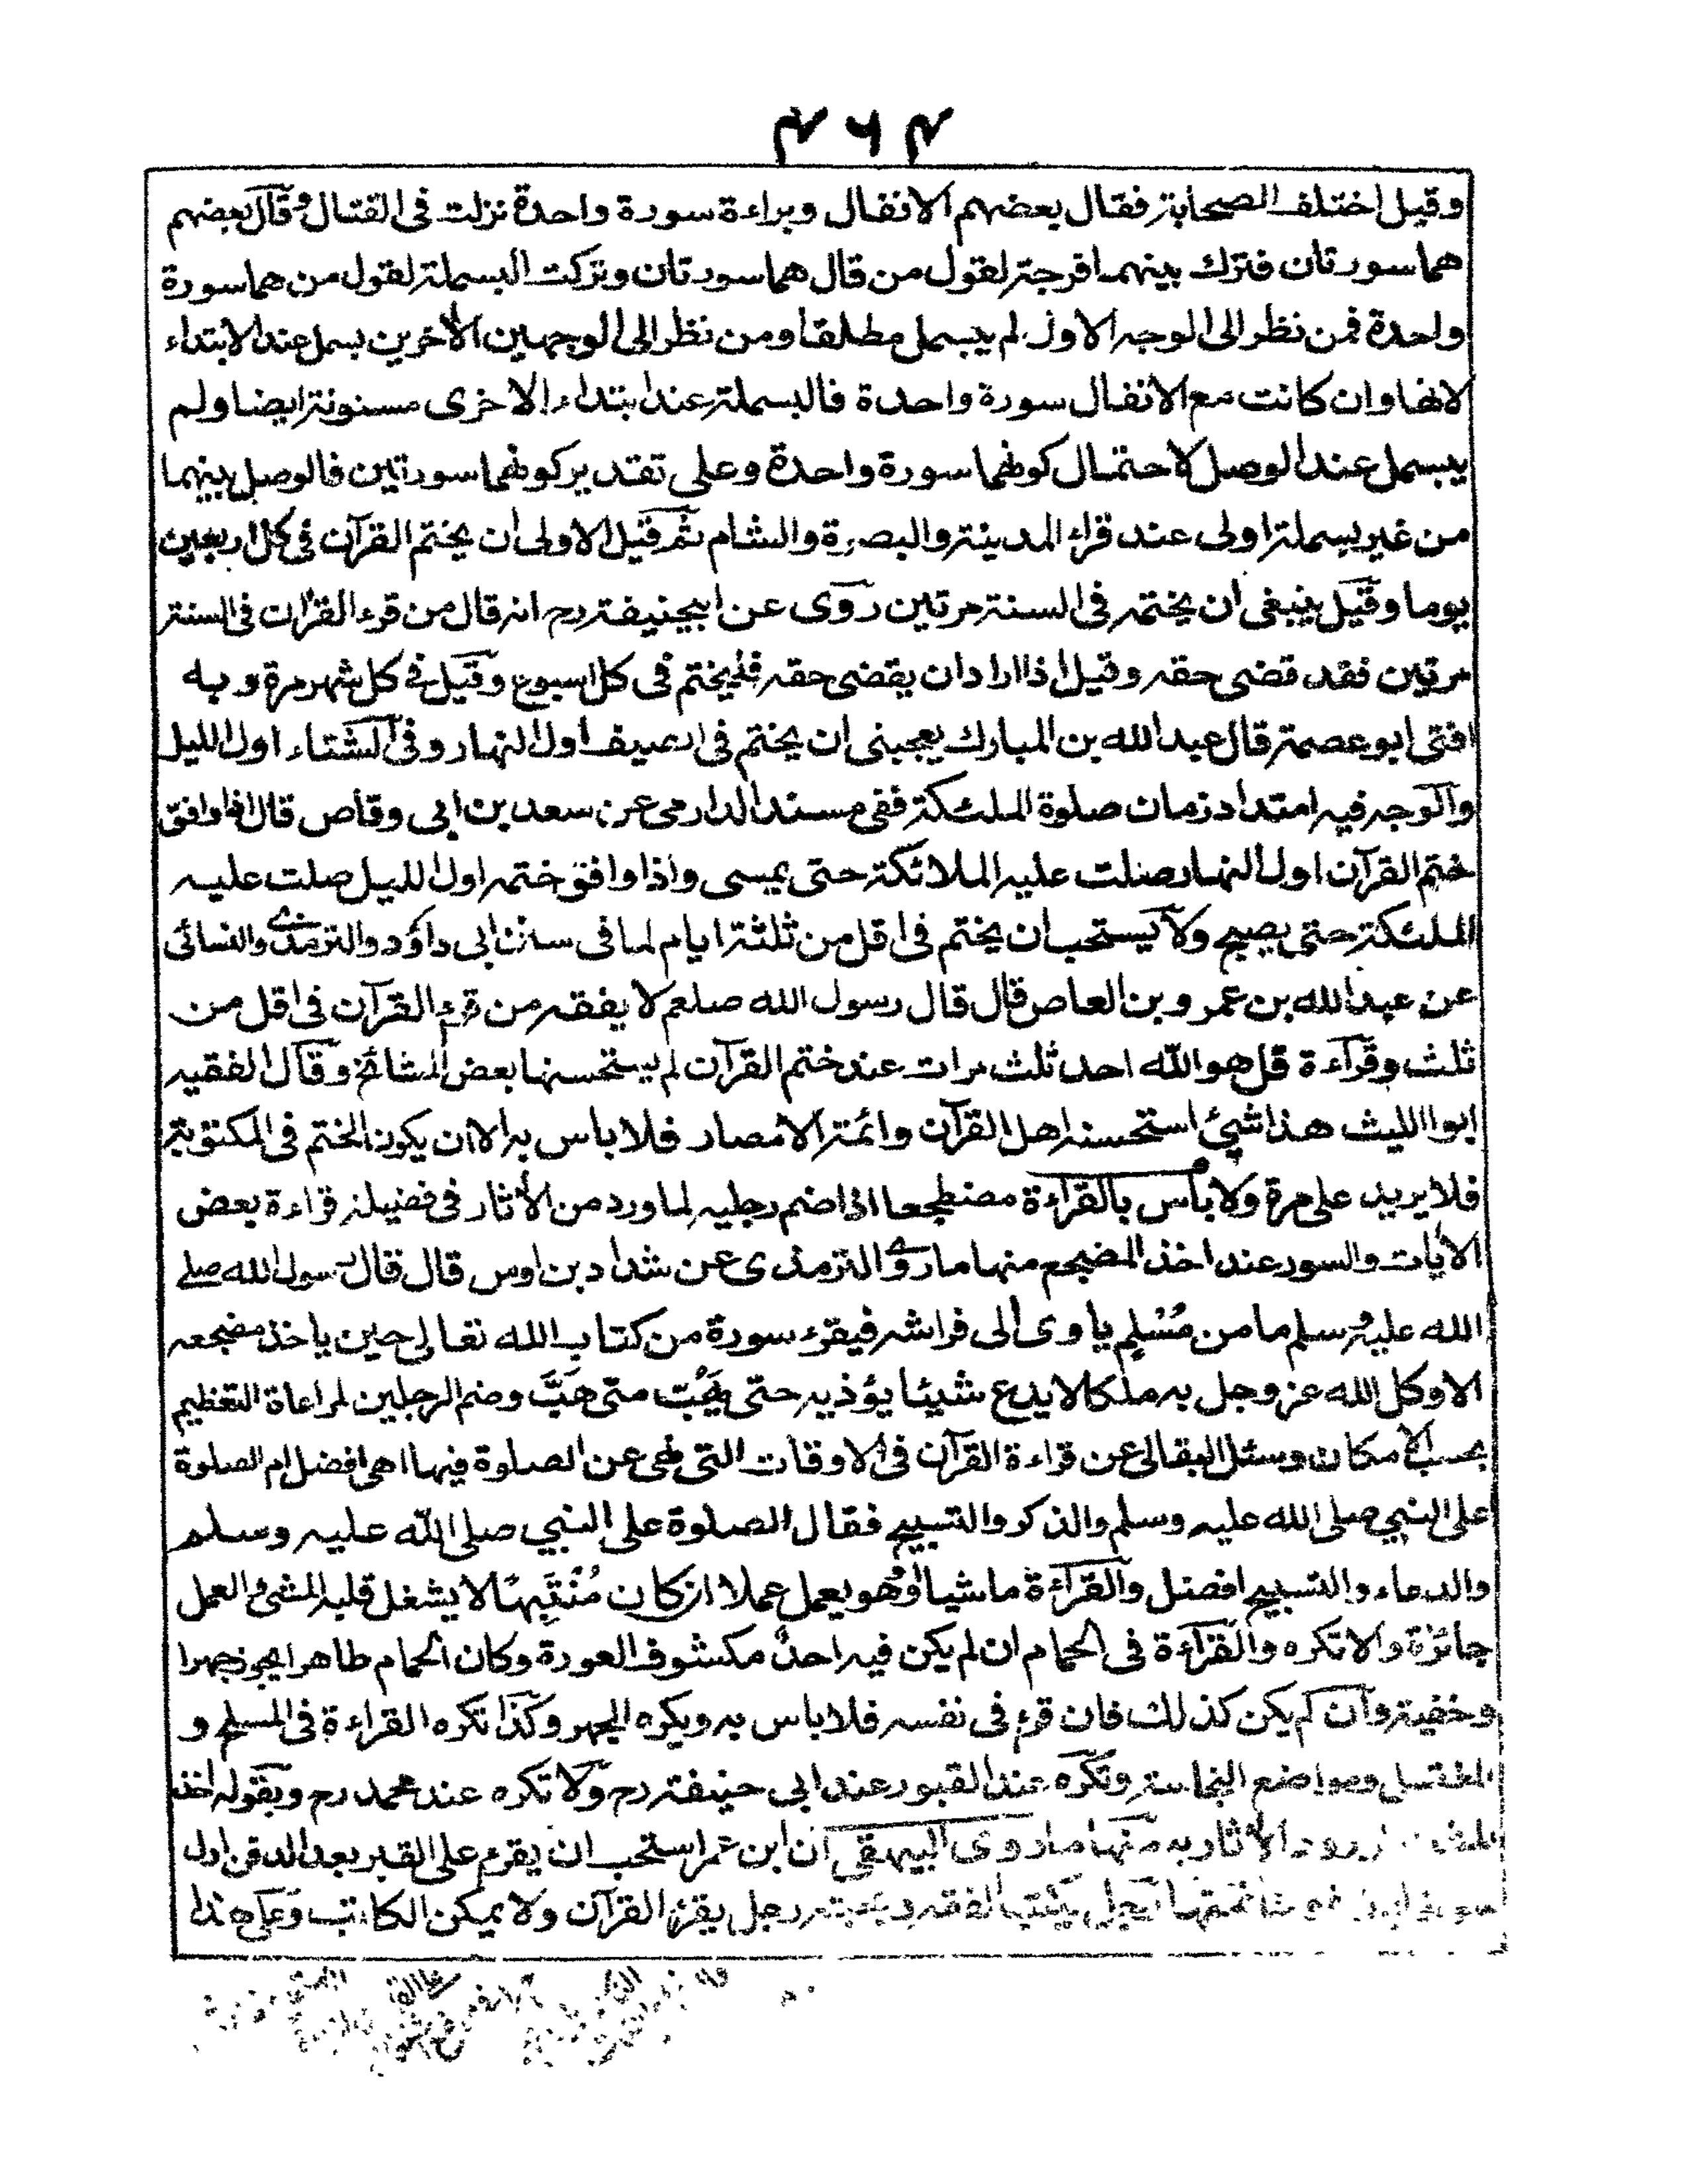 ۴۶۴
وقيل اختلف الصحابة فقال بعضهم الانفال وبراءة سورة واحدة نزلت فى القتال وقال بعضهم
هما سورتان فترك بينهما فرجة لقول من قال هما سورتان وتركت البسملة لقول من هما سورة
واحدة فمن نظر الى الوجه الاول لم يبسمل مطلقا ومن نظر الى الوجهين الأخرين بسمل عند الابتداء
لانها وان كانت مع الانفال سورة واحدة فالبسملة عند ابتداء الاخرى مسنونة ايضا ولم
يبسمل عند الوصل لاحتمال كونهما سورة واحدة وعلى تقدير كونهما سورتين فالوصل بينهما
من غير بسملة اولى عند قراء المدينة والبصرة والشام ثم قيل الاولى ان يختم القرآن فى كل اربعين
يوما وقيل ينبغى ان يختمه فى السنة مرتين روى عن ابيحنيفة رح انه قال من قرء القرآن فى السنة
مرتين فقد قضى حقه وقيل اذا اراد ان يقضى حقه فليختم فى كل اسبوع وقيل فے كل شهر مرة وبه
افتى ابو عصمة قال عبد الله بن المبارك يعجبنى ان يختم فى الصيف اول النهار وفى الشتاء اول الليل
والوجه فيه امتداد زمان صلوة الملئكة ففى مسند الدارمى عن سعد بن ابى وقاص قال اذا وافق
ختم القرآن اول النهار صلت عليه الملائكة حتى يمسى واذا وافق ختمه اول الليل صلت عليه
الملئكة حتى يصبح ولا يستحب ان يختم فى اقل من ثلثة ايام لما فى سنن ابى داؤد والترمذے والنسائى
عن عبد الله بن عمرو بن العاص قال قال رسول الله صلعم لا يفقه من قرء القرآن فى اقل من
ثلث وقراءة قل هو الله احد ثلث مرات عند ختم القرآن لم يستحسنها بعض المشائخ وقال الفقيه
ابوا الليث هذا شئ استحسنه اهل القرآن وائمة الامصار فلا باس به الا ان يكون الختم فى المكتوبة
فلا يريد على مرة ولا باس بالقراءة مضطجعا اذا ضم رجليه لما ورد من الأثار فى فضيلة قراءة بعض
الأيات والسور عند اخذ المضجع منها ما روے الترمذى عن شداد بن اوس قال قال رسول الله صلے
الله عليه وسلم ما من مُسْلِمٍ ياوى الى فراشه فيقرء سورة من كتاب الله تعالى حين ياخذ مضجعه
الا وكل الله عز وجل به ملكا لا يدع شيئا يؤذيه حتى يَهُبَّ متى هَبَّ وضم الرجلين لمراعاة التعظيم
بحسب الامكان وسئل البقالى عن قراءة القرآن فى الاوقات التى نهى عن الصلوة فيها اهى افضل ام الصلوة
على النبي صلى الله عليه وسلم والذكر والتسبيح فقال الصلوة على النبي صلى الله عليه وسلم
والدعاء والتسبيح افضل والقراءة ماشيا او هو يعمل عملا ان كان مُنْتَبِهًا لا يشغل قلبه المشى العمل
جائزة والا تكره والقراءة فى الحمام ان لم يكن فيه احدٌ مكشوف العورة وكان الحمام طاهرا يجوز جهرا
وخفية وان لم يكن كذلك فان قرء فى نفسه فلا باس به ويكره الجهر وكذا تكره القراءة فى المسلخ و
المغتسل ومواضع النجاسة وتكره عند القبور عند ابى حنيفة رح ولا تكره عند محمد رح وبقوله اخذ
الأثار به منها ما روى البيهقى ان ابن عمر استحب ان يقرء على القبر بعد الدفن اول
رجل يكتب الفقه رجل يقرء القرآن ولا يمكن الكاتب وعلى هذا